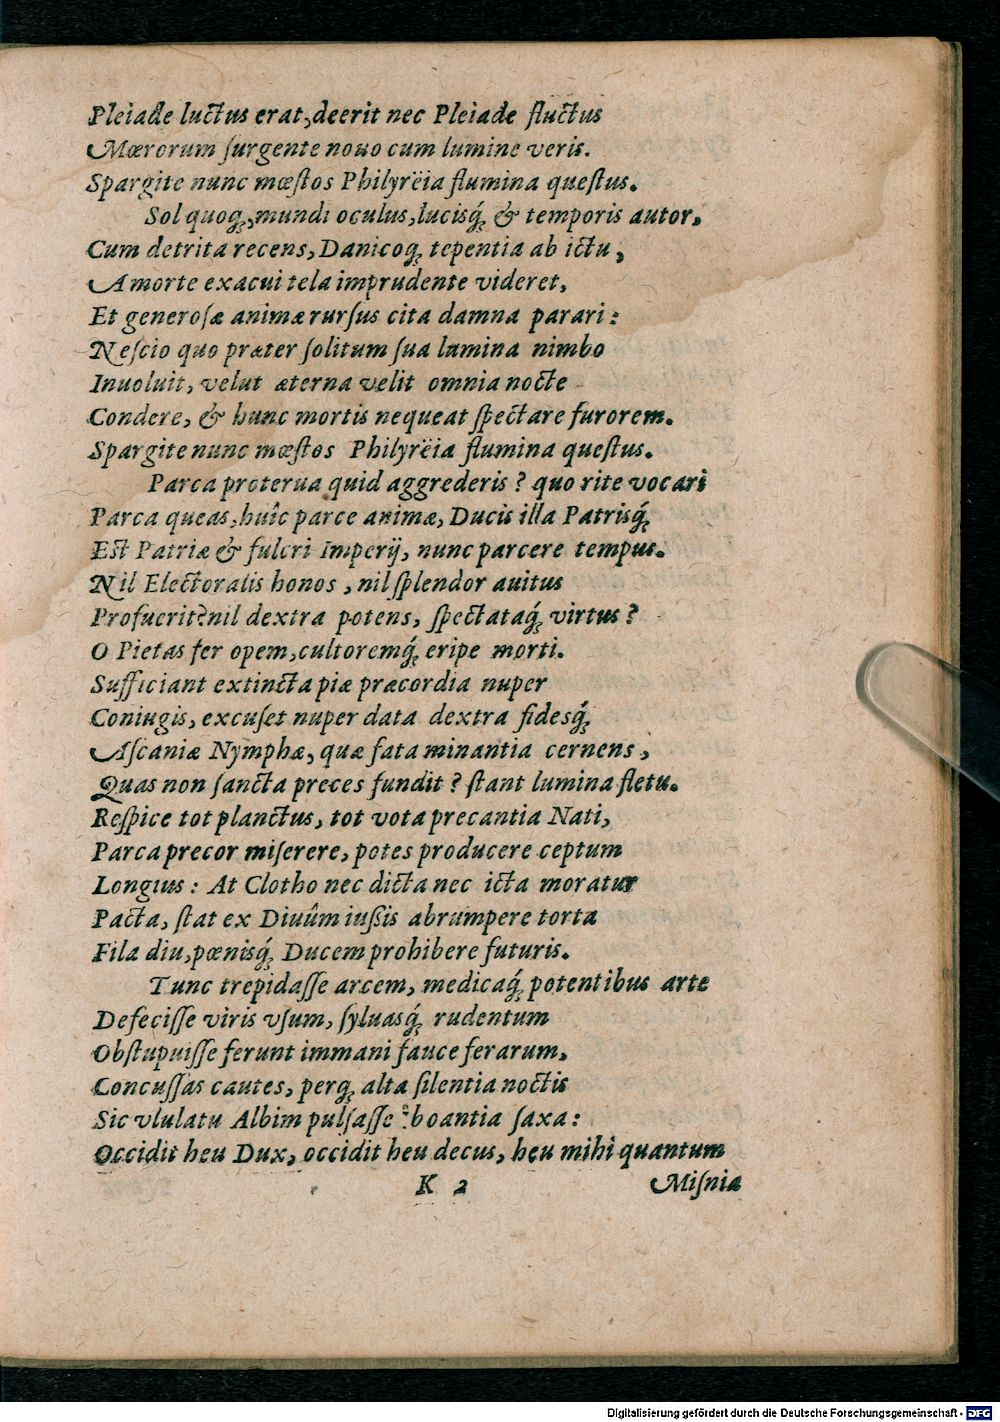 Pleiade luctus erat, deerit nec Pleiade fluctus
Mœrorum ſurgente nouo cum lumine veris.
Spargite nunc mœſtos Philyrëia flumina queſtus.
Sol quoq;, mundi oculus, lucisq́; & temporis autor,
Cum detrita recens, Danicoq; tepentia ab ictu,
A morte exacui tela imprudente videret,
Et generoſæ animæ rurſus cita damna parari:
Neſcio quo præter ſolitum ſua lumina nimbo
Inuoluit, velut æterna velit omnia nocte
Condere, & hunc mortis nequeat ſpectare furorem.
Spargite nunc mœſtos Philyrëia flumina queſtus.
Parca proterua quid aggrederis? quo rite vocari
Parca queas, huîc parce animæ, Ducis illa Patrisq́;
Est Patriæ & fulcri Imperij, nunc parcere tempus.
Nil Electoralis honos, nil ſplendor auitus
Profuerit? nil dextra potens, ſpectataq́; virtus?
O Pietas fer opem, cultoremq́; eripe morti.
Sufficiant extincta piæ præcordia nuper
Coniugis, excuſet nuper data dextra fidesq́;
Aſcaniæ Nymphæ, quæ fata minantia cernens,
Quas non ſancta preces fundit? ſtant lumina fletu.
Reſpice tot planctus, tot vota precantia Nati,
Parca precor miſerere, potes producere ceptum
Longius: At Clotho nec dicta nec icta moratur
Pacta, ſtat ex Diuûm iußis abrumpere torta
Fila diu, pœnisq́; Ducem prohibere futuris.
Tunc trepidaſſe arcem, medicaq́; potentibus arte
Defeciſſe viris vſum, ſyluasq́; rudentum
Obſtupuiſſe ferunt immani fauce ferarum,
Concuſſas cautes, perq; alta ſilentia noctis
Sic vlulatu Albim pulſaſſe boantia ſaxa:
Occidit heu Dux, occidit heu decus, heu mihi quantum
K 2 Miſnia
Digitalisierung gefördert durch die Deutsche Forschungsgemeinschaft - DFG